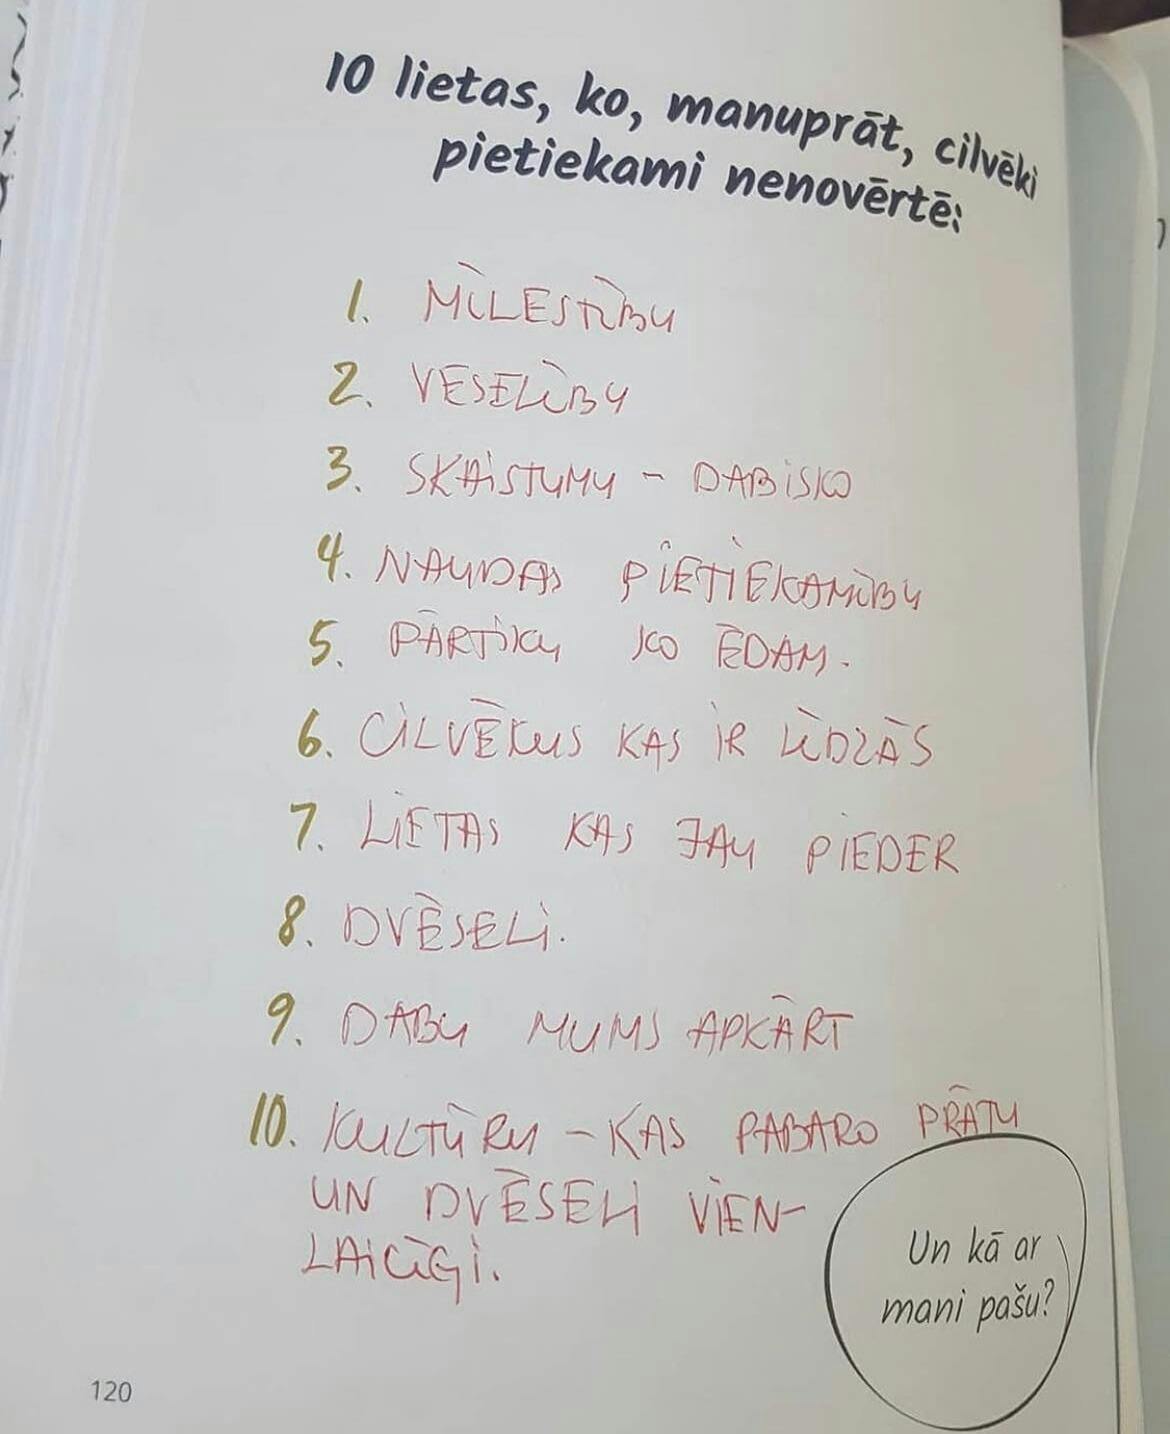 10 lietas, ko, manuprāt, cilvēki
pietiekami nenovērtē:
1. MĪLESTĪBU
2. VESELĪBU
3. SKAISTUMU - DABISKO
4. NAUDAS PIETIEKAMĪBU
5. PĀRTIKU KO ĒDAM.
6. CILVĒKUS KAS IR LĪDZĀS
7. LIETAS KAS JAU PIEDER
8. DVĒSELI.
9. DABU MUMS APKĀRT
10. KULTŪRU - KAS PABARO PRĀTU
UN DVĒSELI VIEN-
LAICĪGI.
Un kā ar
mani pašu?
120